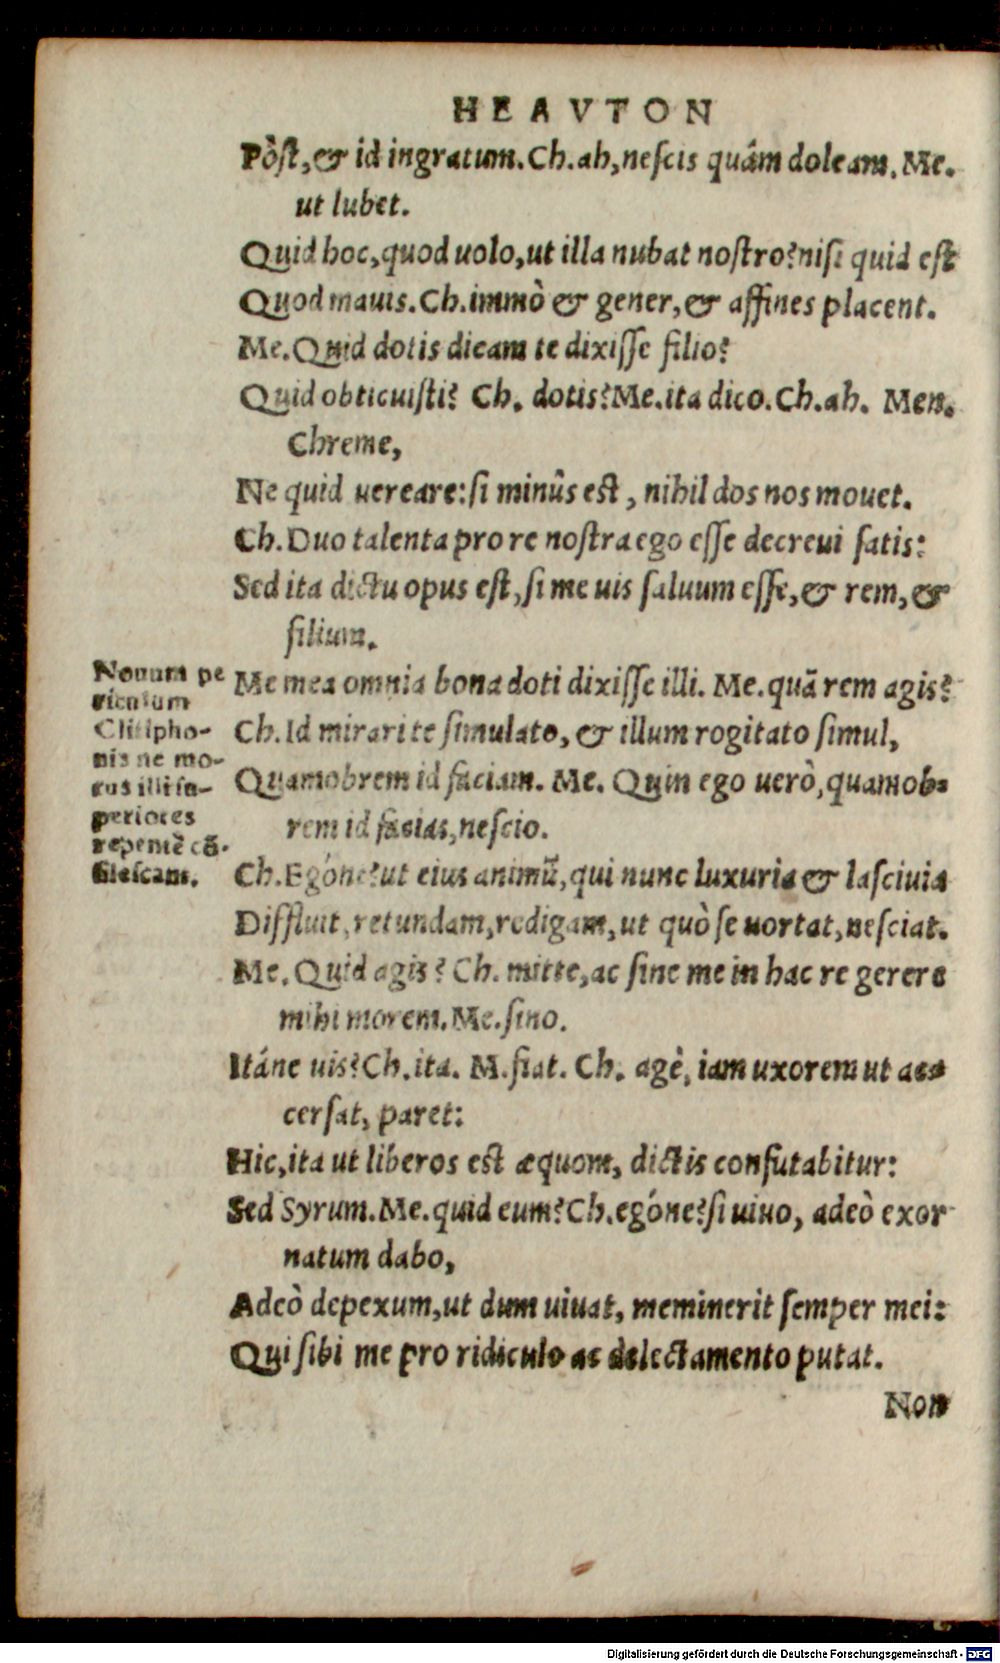 HEAVTON
Pòst, & id ingratum. Ch. ah, nescis quâm doleam. Me.
ut lubet.
Quid hoc, quod uolo, ut illa nubat nostro? nisi quid est
Quod mauis. Ch. immò & gener, & affines placent.
Me. Quid dotis dicam te dixisse filio?
Quid obticuisti? Ch. dotis? Me. ita dico. Ch. ah. Men.
Chreme,
Ne quid uereare: si minûs est, nihil dos nos mouet.
Ch. Duo talenta pro re nostra ego esse decreui satis:
Sed ita dictu opus est, si me uis saluum esse, & rem, &
filium.
Me mea omnia bona doti dixisse illi. Me. quā rem agis?
Ch. Id mirari te simulato, & illum rogitato simul,
Quamobrem id faciam. Me. Quin ego uerò, quamob-
rem id facias, nescio.
Ch. Egóne? ut eius animū, qui nunc luxuria & lasciuia
Diffluit, retundam, redigam, ut quò se uortat, nesciat.
Me. Quid agis? Ch. mitte, ac sine me in hac re gerere
mihi morem. Me. sino.
Itáne uis? Ch. ita. M. fiat. Ch. agè, iam uxorem ut ac-
cersat, paret:
Hic, ita ut liberos est æquom, dictis confutabitur:
Sed Syrum. Me. quid eum? Ch. egóne? si uiuo, adeò exor
natum dabo,
Adeò depexum, ut dum uiuat, meminerit semper mei:
Qui sibi me pro ridiculo ac delectamento putat.
Non
Nouum pe
riculum
Clitipho-
nis ne mo-
tus illi su-
periores
repentē cō-
silescant.
Digitalisierung gefördert durch die Deutsche Forschungsgemeinschaft - DFG